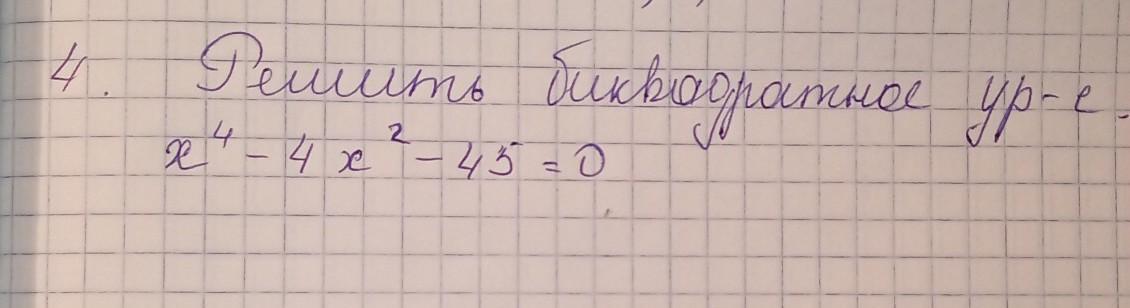 4. Решить биквадратное ур-е.
x⁴ - 4x² - 45 = 0